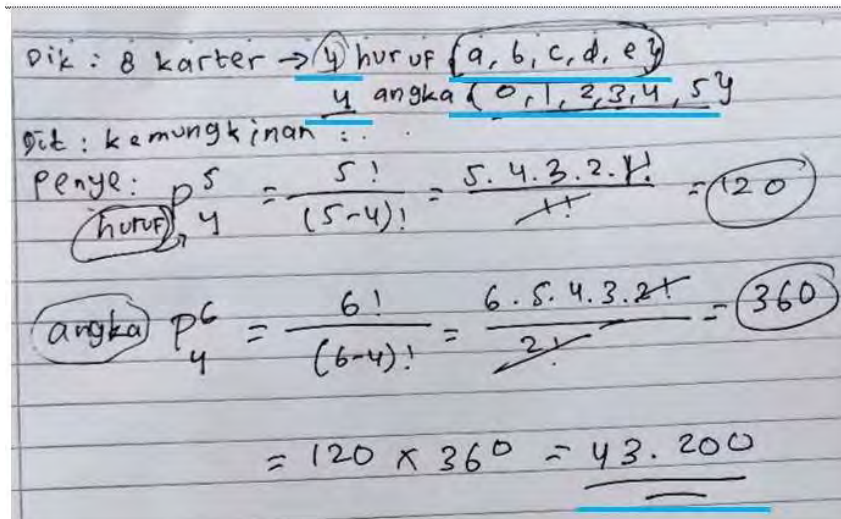 Dik : 8 karter → 4 huruf {a, b, c, d, e}
4 angka {0, 1, 2, 3, 4, 5}
Dit : kemungkinan : . .
Penye : P 5 4 = 5! / (5-4)! = 5. 4. 3. 2. 1! / 1! = 120
huruf
angka P 6 4 = 6! / (6-4)! = 6 . 5. 4. 3. 2! / 2! = 360
= 120 x 360 = 43. 200